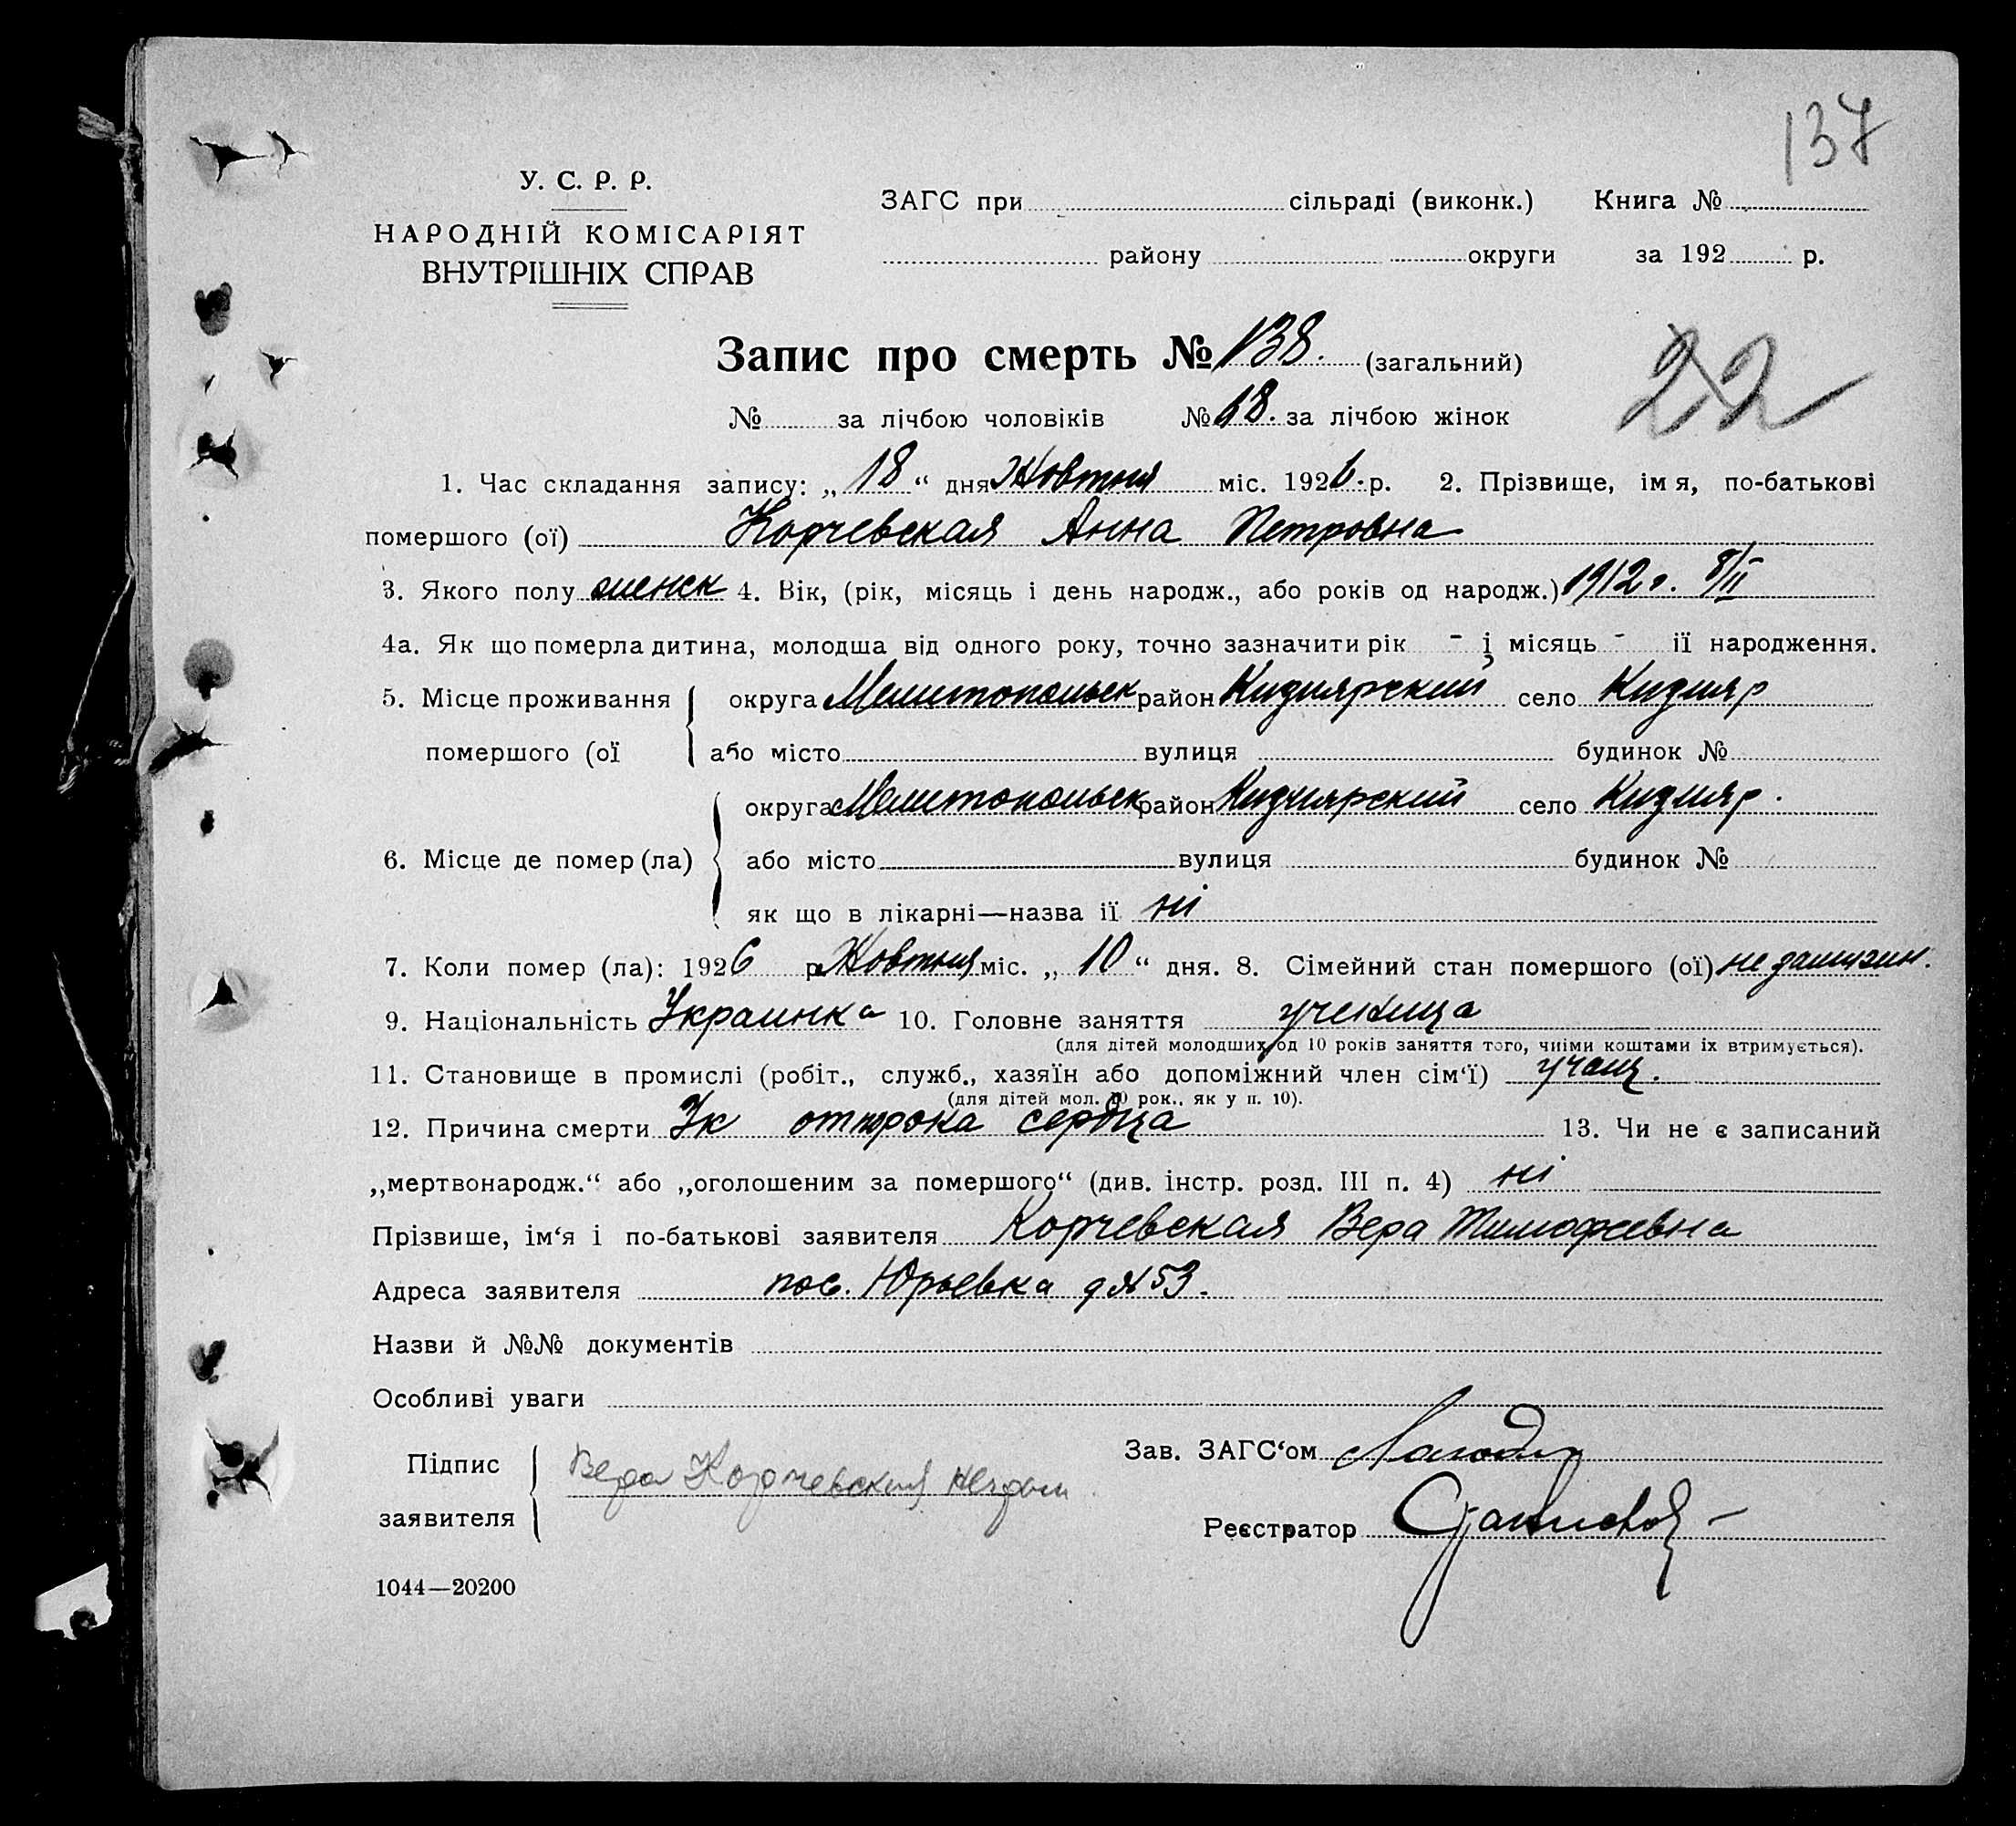 137
У. С. Р. Р.
НАРОДНІЙ КОМІСАРІЯТ
ВНУТРІШНІХ СПРАВ
ЗАГС при сільраді (виконк.) Книга №
району округи за 192 р.
Запис про смерть № 138. (загальний)
22
№ за лічбою чоловіків № 68. за лічбою жінок
1. Час складання запису: „ 18 “ дня Жовтня міс. 1926. р. 2. Прізвище, імя, по-батькові
помершого (ої) Корчевская Анна Петровна
3. Якого полу женск 4. Вік, (рік, місяць і день народж., або років од народж.) 1912 г. 8/II
4а. Як що померла дитина, молодша від одного року, точно зазначити рік - і місяць - ії народження.
5. Місце проживання помершого (ої
округа Мелитопольск район Кизиярский село Кизияр
або місто вулиця будинок №
6. Місце де помер (ла)
округа Мелитопольск район Кизиярский село Кизияр.
або місто вулиця будинок №
як що в лікарні—назва ії ні
7. Коли помер (ла): 1926 р. Жовтня міс. „ 10 “ дня. 8. Сімейний стан помершого (ої) не
9. Національність Украинка 10. Головне заняття ученица
(для дітей молодших од 10 років заняття того, чиїми коштами іх втримується).
11. Становище в промислі (робіт., служб., хазяїн або допоміжний член сім‘ї) учащ.
(для дітей мол. 10 рок., як у п. 10).
12. Причина смерти сердца 13. Чи не є записаний
„мертвонародж.“ або „оголошеним за помершого“ (див. інстр. розд. III п. 4) ні
Прізвише, ім‘я і по-батькові заявителя Корчевская Вера Тимофеевна
Адреса заявителя пос. Юрьевка д № 53.
Назви й №№ документів
Особливі уваги
Підпис заявителя Вера Корчевская
Зав. ЗАГС‘ом
Реєстратор
1044—20200